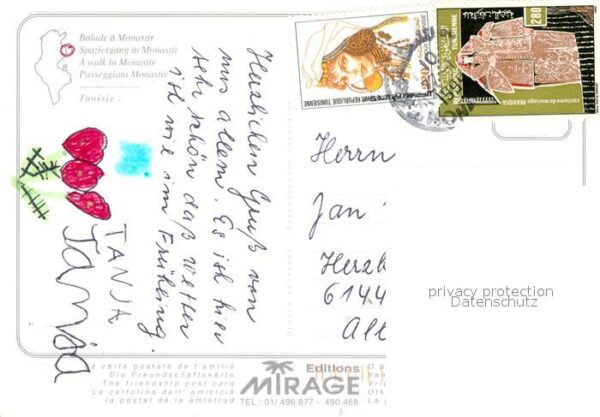 Balade à Monastir
Spaziergang in Monastir
A walk in Monastir
Passeggiata Monastir
Tunisie.
Herzlichen Gruß von
uns allen. Es ist hier
sehr schön daß Wetter
ist wie im Frühling.
TANJA
Herrn
Jan
Herzb
6144
Alt
privacy protection
Datenschutz
REPUBLIQUE TUNISIENNE
280
costume de mariage: MAHDIA
La carte postale de l'amitié
Die Freundschaftskarte
The friendship post card
La cartolina dell' amicizia
la postal de la amistad
Editions
MIRAGE
TEL: 01/ 496.877 - 490.468